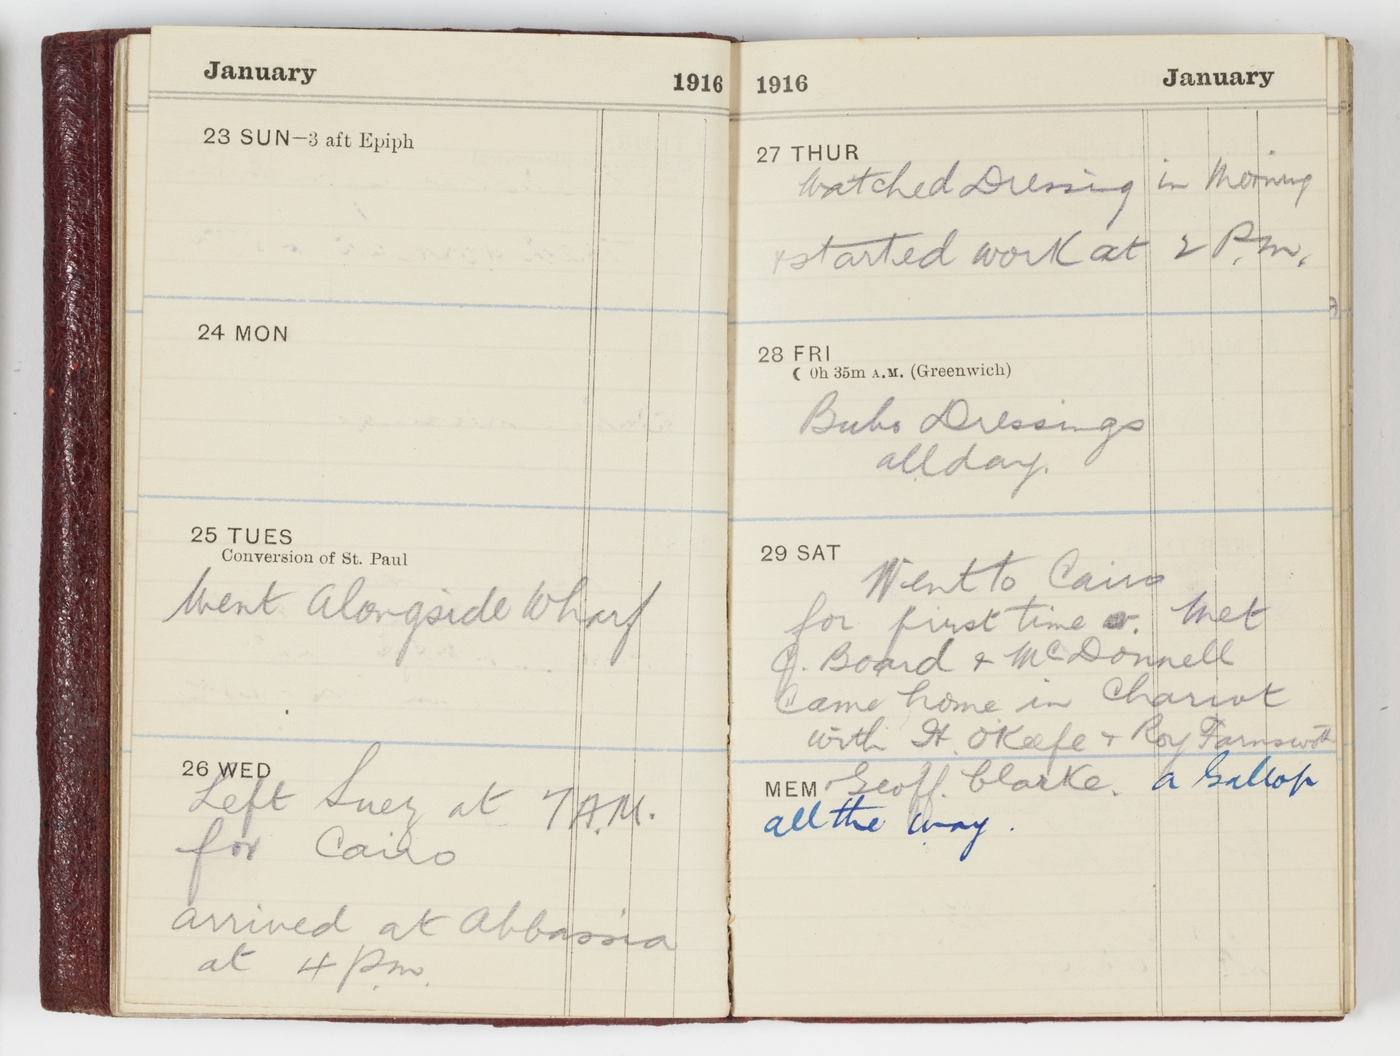 January 1916
23 SUN—3 aft Epiph
24 MON
25 TUES
Conversion of St. Paul
Went Alongside Wharf
26 WED
Left Suez at 7 A.M.
for Cairo
arrived at Abbassia
at 4 P.m.
1916 January
27 THUR
Watched Dressing in Morning
& started work at 2 P.m.
28 FRI
☾ 0h 35m A.M. (Greenwich)
Bubo Dressings
all day.
29 SAT
Went to Cairo
for first time &. Met
Board & McDonnell
Came home in Chariot
with H. O'Keefe & Roy Farnsworth
MEM Geoff. Clarke. a Gallop
all the way.